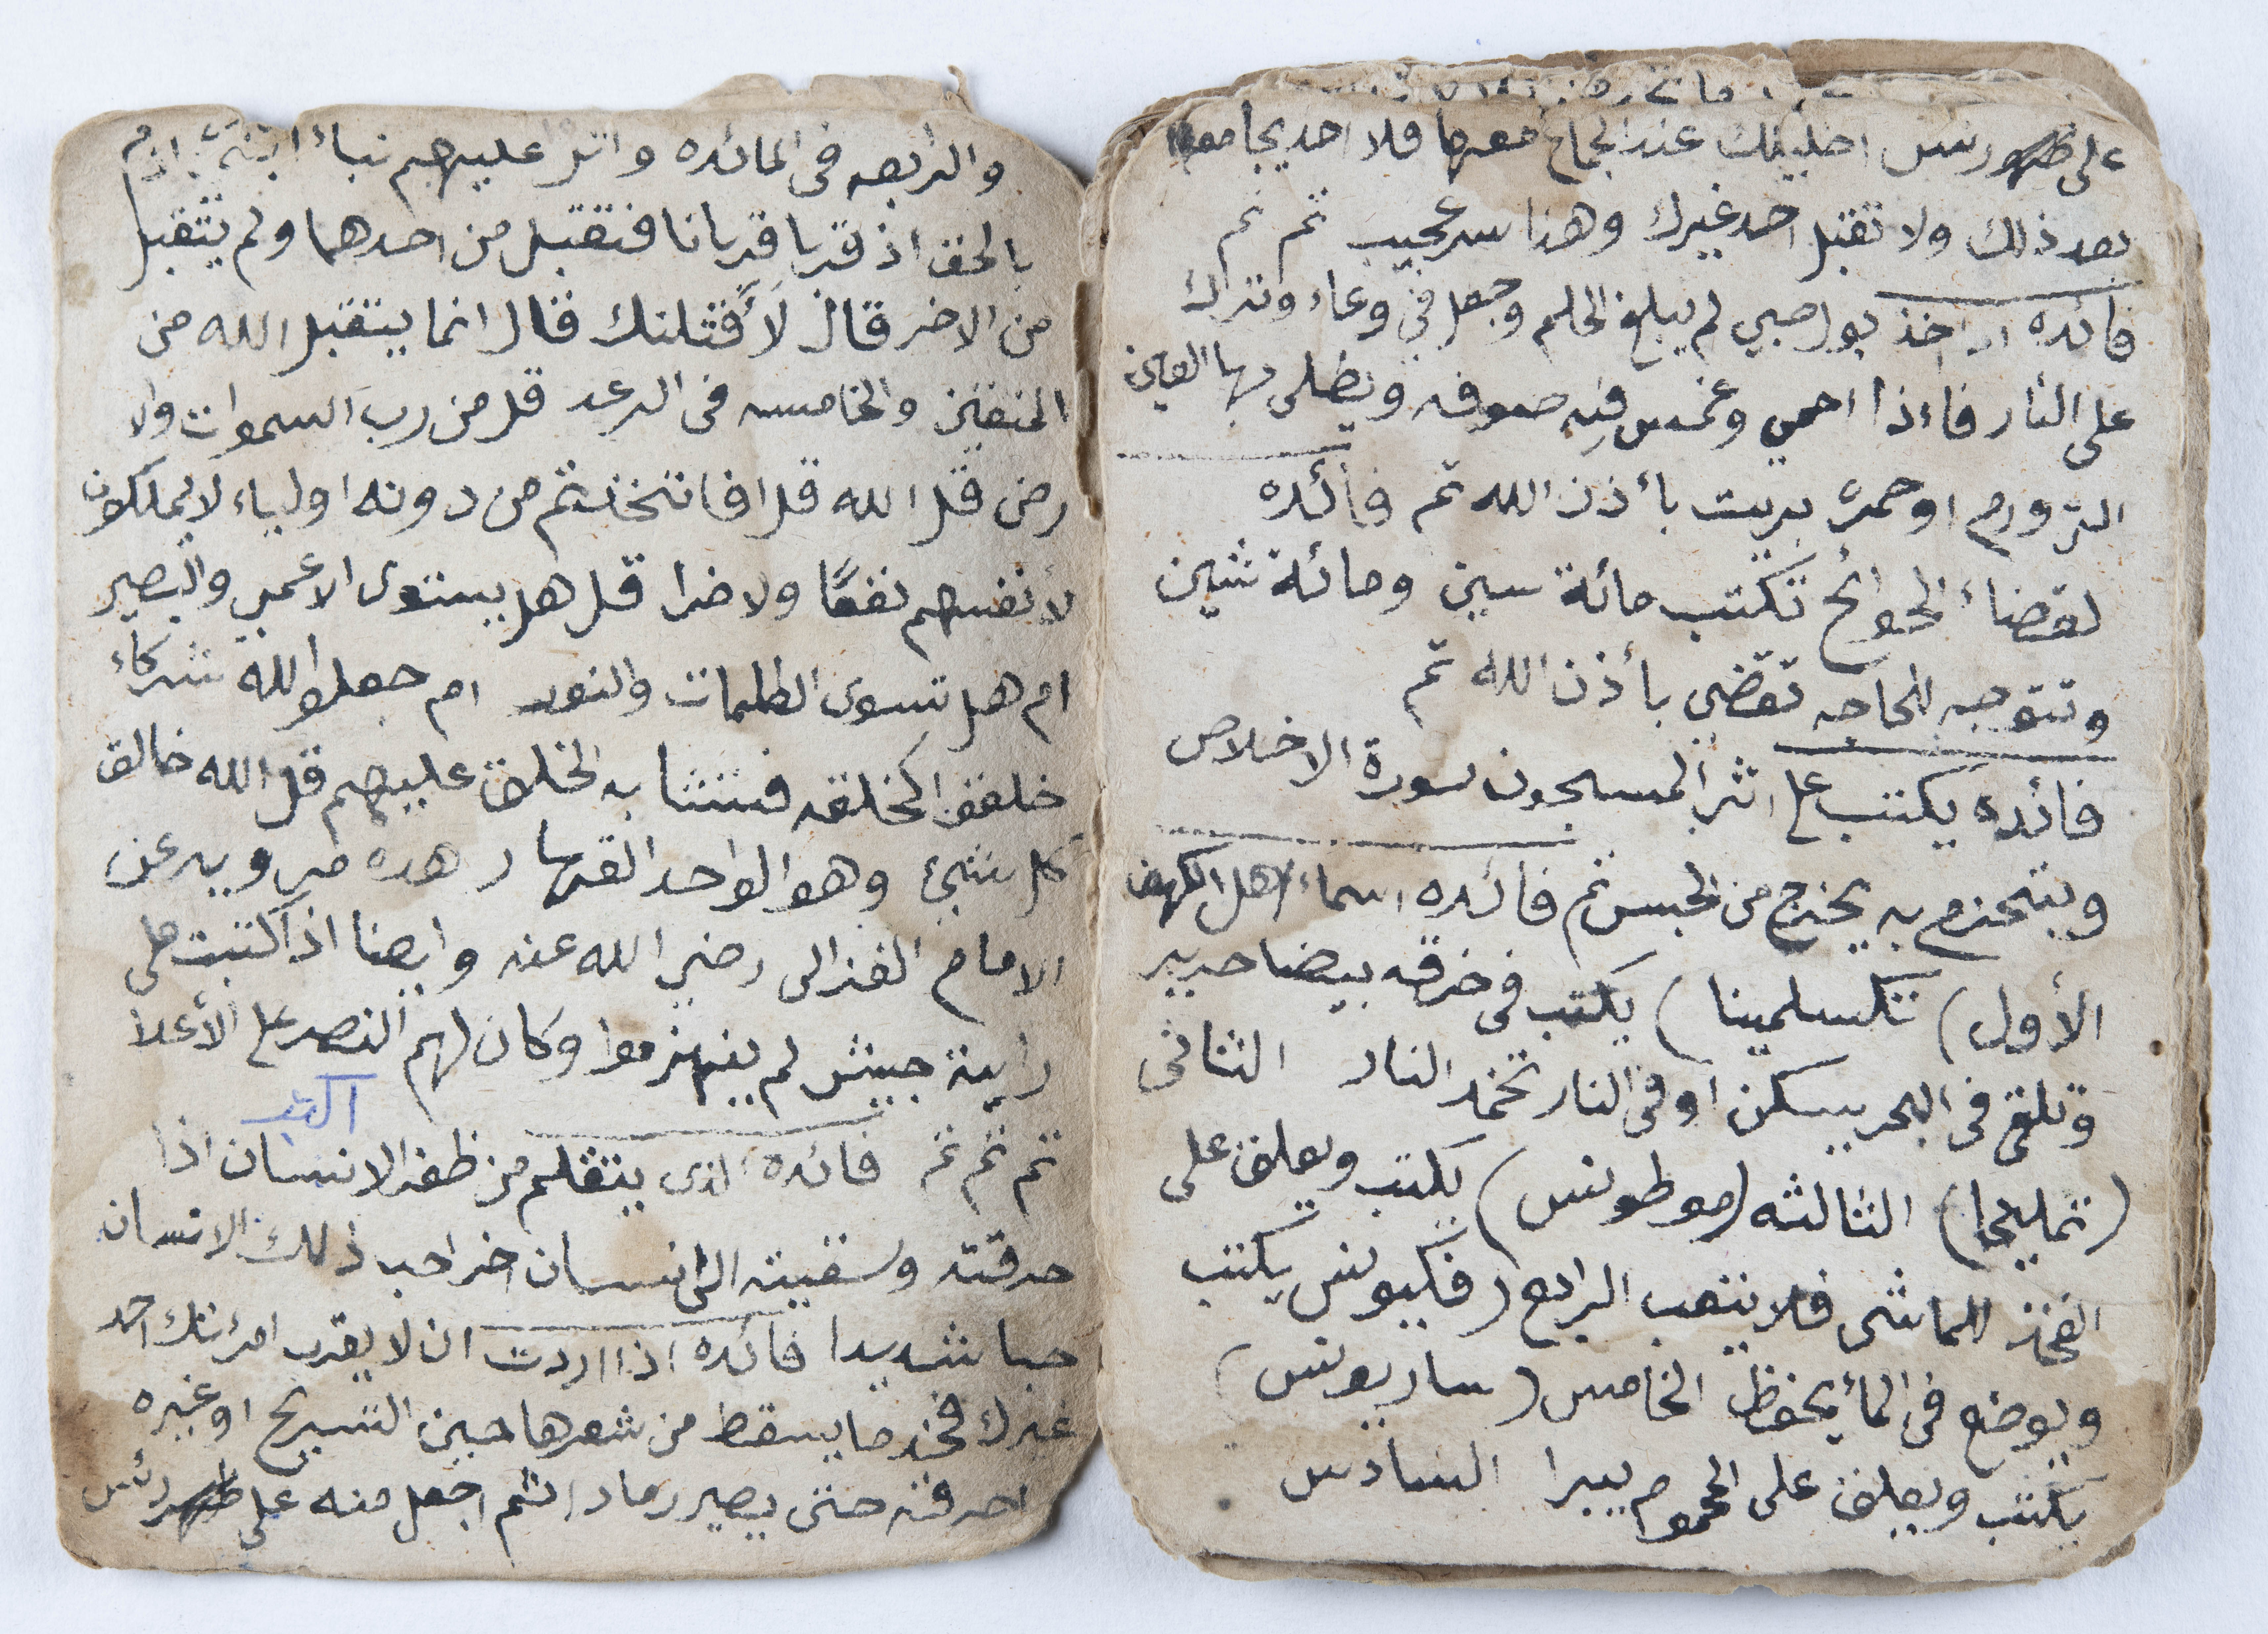 والرابعه في المائده واتل عليهم نباء ابني ادم
بالحق اذ قربا قربانا فتقبل من احدهما ولم يتقبل
من الاخر قال لأقتلنك قال انما يتقبل الله من
المتقين والخامسه في الرعد قل من رب السموات والا
رض قل الله قل افاتخذتم من دونه اولياء لا يملكون
لأنفسهم نفعًا ولا ضرا قل هل يستوى الاعمي والبصير
ام هل تسوى الظلمات والنور ام جعلوا لله شركاء
خلقوا كخلقه فتشابه الخلق عليهم قل الله خالق
كل شيئ وهو الواحد القهار هده مرويه عن
الامام الغزالى رضي الله عنه وايضا اذا كتبت على
راية جيش لم ينهزموا وكان لهم النصر على الأعدا
اكبر
تم تم تم فائده الذى يتقلم من ظفر الانسان اذا
حرقته وسقيته الى انسان اخر احب ذلك الانسان
حبا شديدا فائده اذا اردت ان لا يقرب امرئتك احد
غيرك فخذ ما يسقط من شعرها حين التسريح او غيره
احرقه حتى يصير رمادا ثم اجعل منه على رئس
على رس احليلك عند الجماع معها فلا احد يجامعها
بعد ذلك ولا تقبل احد غيرك وهذا سر عجيب تم تم
فائده اذا اخذ بول صبي لم يبلغ الحلم وجعل في وعاء وتراك
على النار فاءذا احمي وغمس فيه صوفه ويطلى بها العين
التزورم او حمره بريت بأذن الله تم فائده
لقضاء الحوائج تكتب مائة سين ومائة شين
وتتوجه للحاجه تقضي بأذن الله تم
فائده يكتب على اثر المسجون سورة الاخلاص
ويتحزم به يخرج من الحبس تم فائده اسماء اهل الكهف
الأول) تكسلمينا) يكتب في خرقه بيضا حرير
وتلقى في البحر يسكن او في النار تخمد النار الثانى
(تمليحا) الثالثه (موطونس) يكتب ويعلق على
الفخذ للماشى فلا يتعب الرابع (فكيونس يكتب
ويوضع في المأ يحفظ الخامس (ساريونس)
يكتب ويعلق على المحموم يبرا السادس